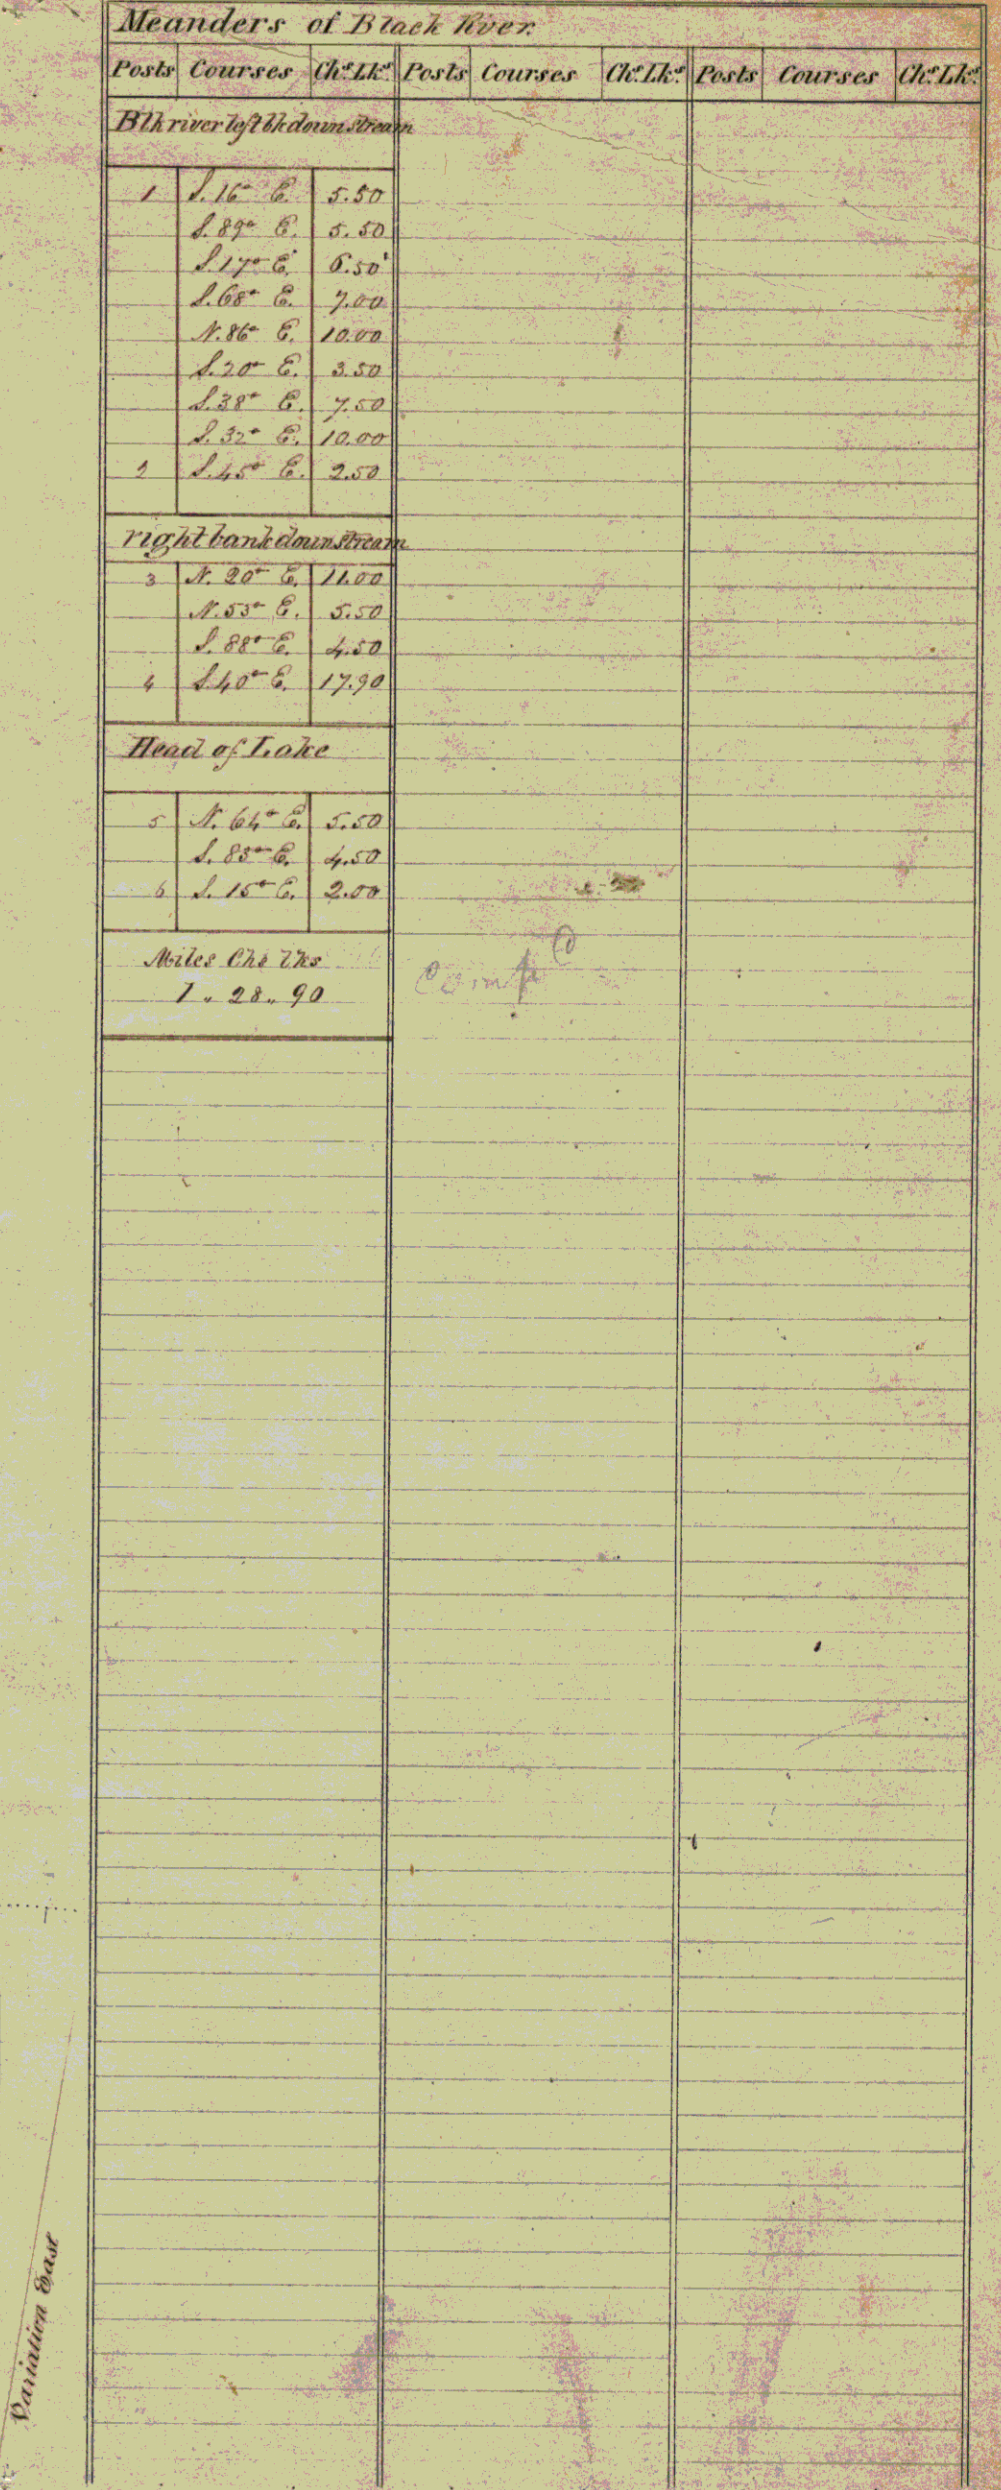 Meanders of Black River.
Posts Courses Chs. Lks. Posts Courses Chs. Lks. Posts Courses Chs. Lks.
Blk river left bk down stream
1 S. 16° E. 5.50
S. 89° E. 5.50
S. 17° E. 6.50
S. 68° E. 7.00
N. 86° E. 10.00
S. 20° E. 3.50
S. 38° E. 7.50
S. 32° E. 10.00
2 S. 45° E. 2.50
right bank down stream
3 N. 20° E. 11.00
N. 53° E. 5.50
S. 88° E. 4.50
4 S. 40° E. 17.90
Head of Lake
5 N. 64° E. 5.50
S. 83° E. 4.50
6 S. 15° E. 2.00
Miles Chs Lks
1 „ 28 „ 90
Comp
Variation East